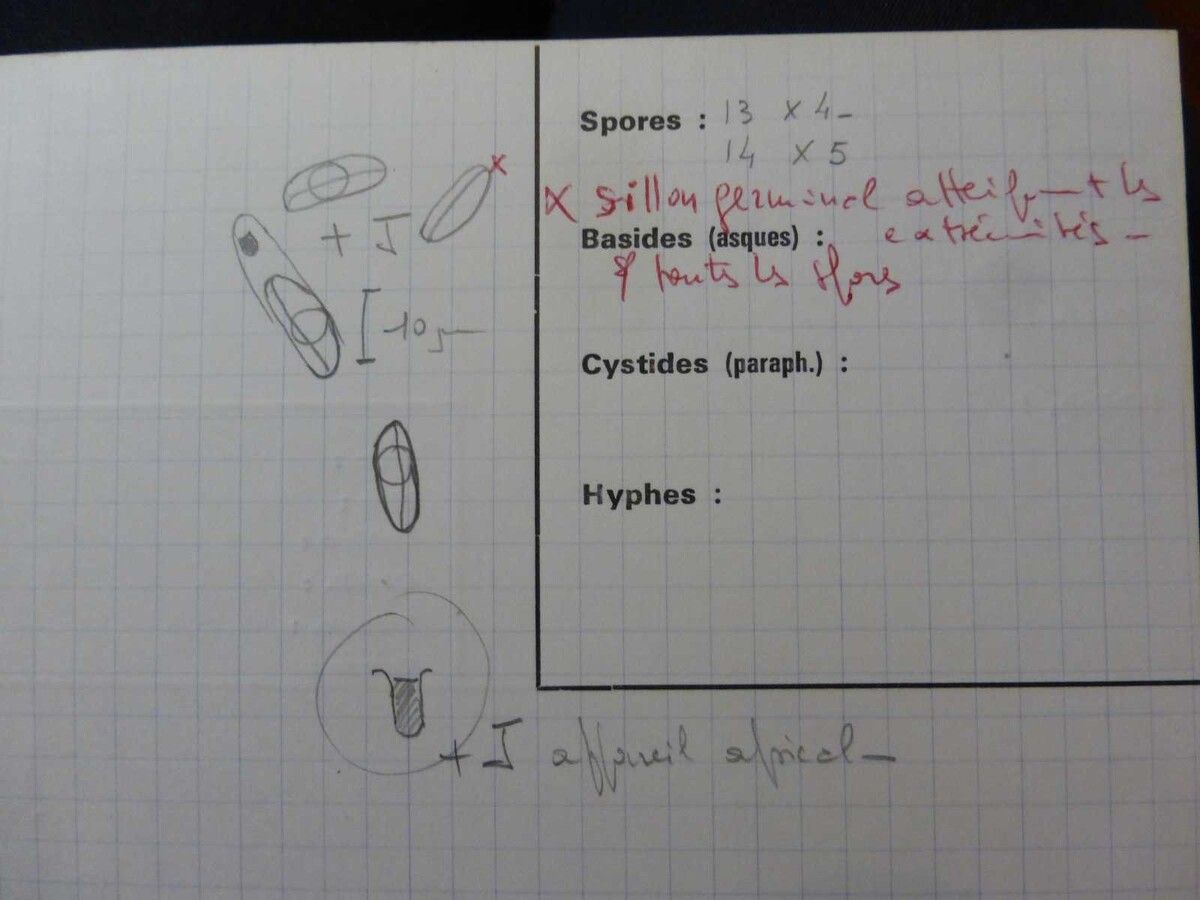 Spores : 13 x 4 -
14 x 5
x sillon germinal atteignant les
Basides (asques) : extrémités -
toutes les spores
+ J
10 µm
Cystides (paraph.) :
Hyphes :
+ J appareil apical -